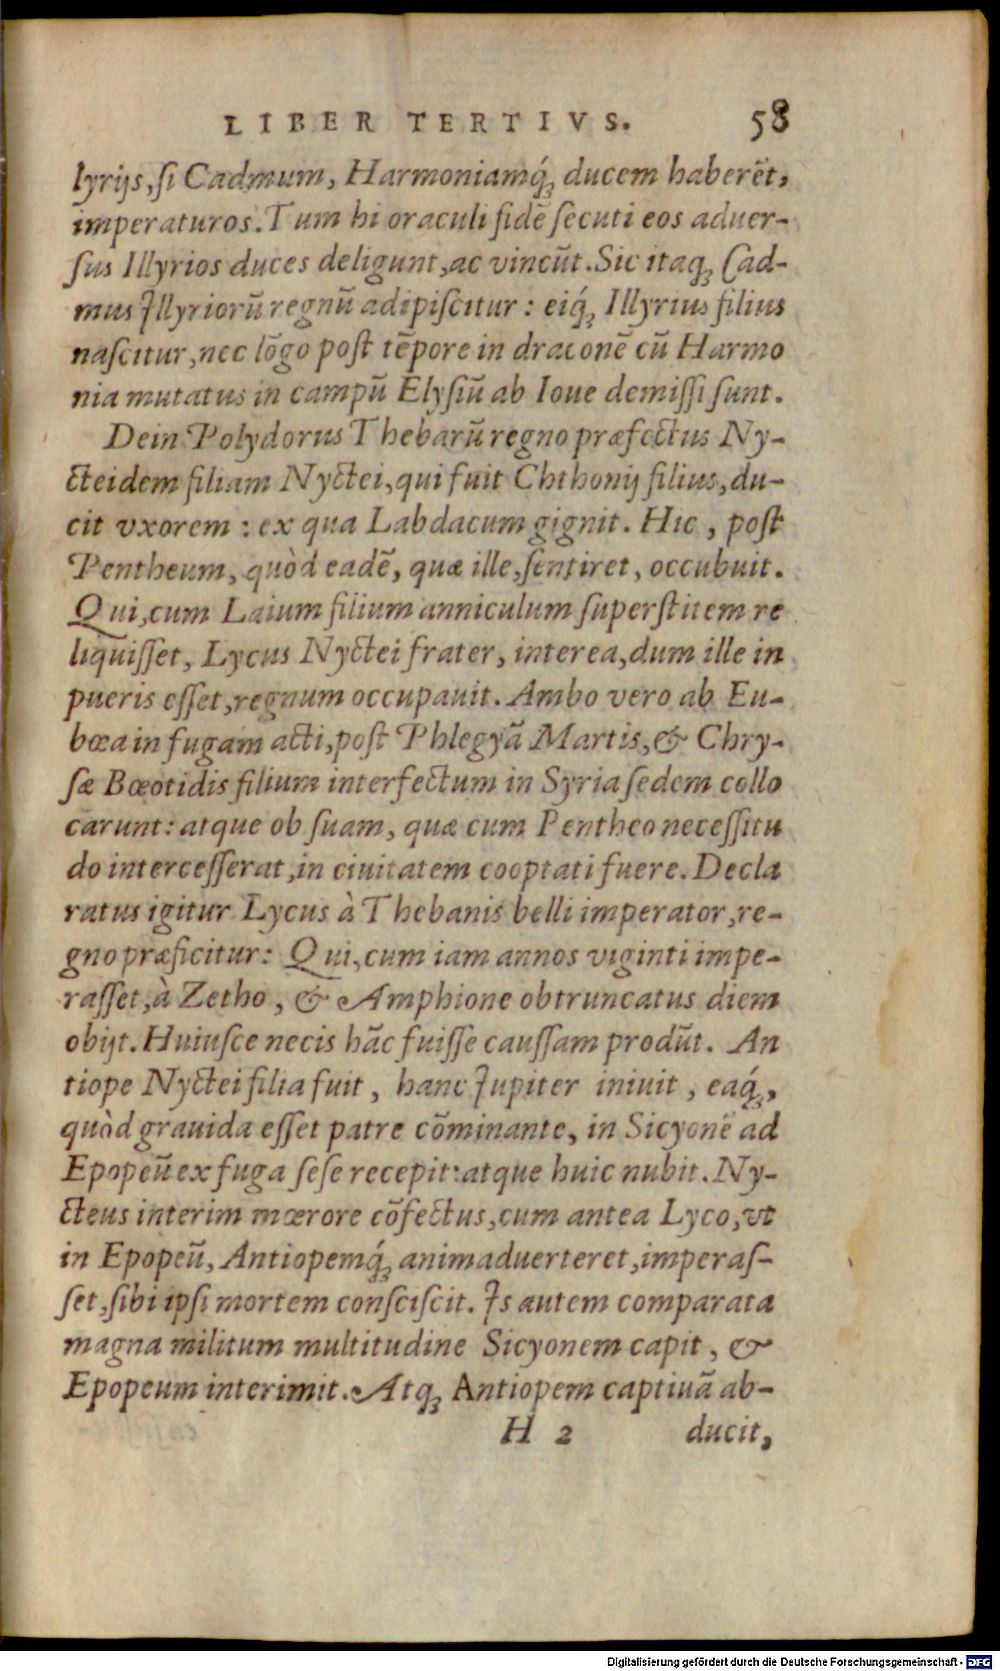 LIBER TERTIVS. 58
lyrijs, ſi Cadmum, Harmoniamq́ꝫ ducem haberẽt,
imperaturos. Tum hi oraculi fidẽ ſecuti eos aduer-
ſus Illyrios duces deligunt, ac vincũt. Sic itaqꝫ Cad-
mus Illyriorũ regnũ adipiſcitur: eiq́ꝫ Illyrius filius
naſcitur, nec lõgo poſt tẽpore in draconẽ cũ Harmo
nia mutatus in campũ Elyſiũ ab Ioue demiſſi ſunt.
Dein Polydorus Thebarũ regno præfectus Ny-
cteidem filiam Nyctei, qui fuit Chthonij filius, du-
cit vxorem: ex qua Labdacum gignit. Hic, poſt
Pentheum, quòd eadẽ, quæ ille, ſentiret, occubuit.
Qui, cum Laium filium anniculum ſuperſtitem re
liquiſſet, Lycus Nyctei frater, interea, dum ille in
pueris eſſet, regnum occupauit. Ambo vero ab Eu-
bœa in fugam acti, poſt Phlegyã Martis, & Chry-
ſæ Bœotidis filium interfectum in Syria ſedem collo
carunt: atque ob ſuam, quæ cum Pentheo neceſſitu
do interceſſerat, in ciuitatem cooptati fuere. Decla
ratus igitur Lycus à Thebanis belli imperator, re-
gno præficitur: Qui, cum iam annos viginti impe-
raſſet, à Zetho, & Amphione obtruncatus diem
obijt. Huiuſce necis hãc fuiſſe cauſſam prodũt. An
tiope Nyctei filia fuit, hanc Iupiter iniuit, eaq́ꝫ,
quòd grauida eſſet patre cõminante, in Sicyonẽ ad
Epopeũ ex fuga ſeſe recepit: atque huic nubit. Ny-
cteus interim mœrore cõfectus, cum antea Lyco, vt
in Epopeũ, Antiopemq́ꝫ animaduerteret, imperaſ-
ſet, ſibi ipſi mortem conſciſcit. Is autem comparata
magna militum multitudine Sicyonem capit, &
Epopeum interimit. Atqꝫ Antiopem captiuã ab-
H 2 ducit,
Digitalisierung gefördert durch die Deutsche Forschungsgemeinschaft - DFG